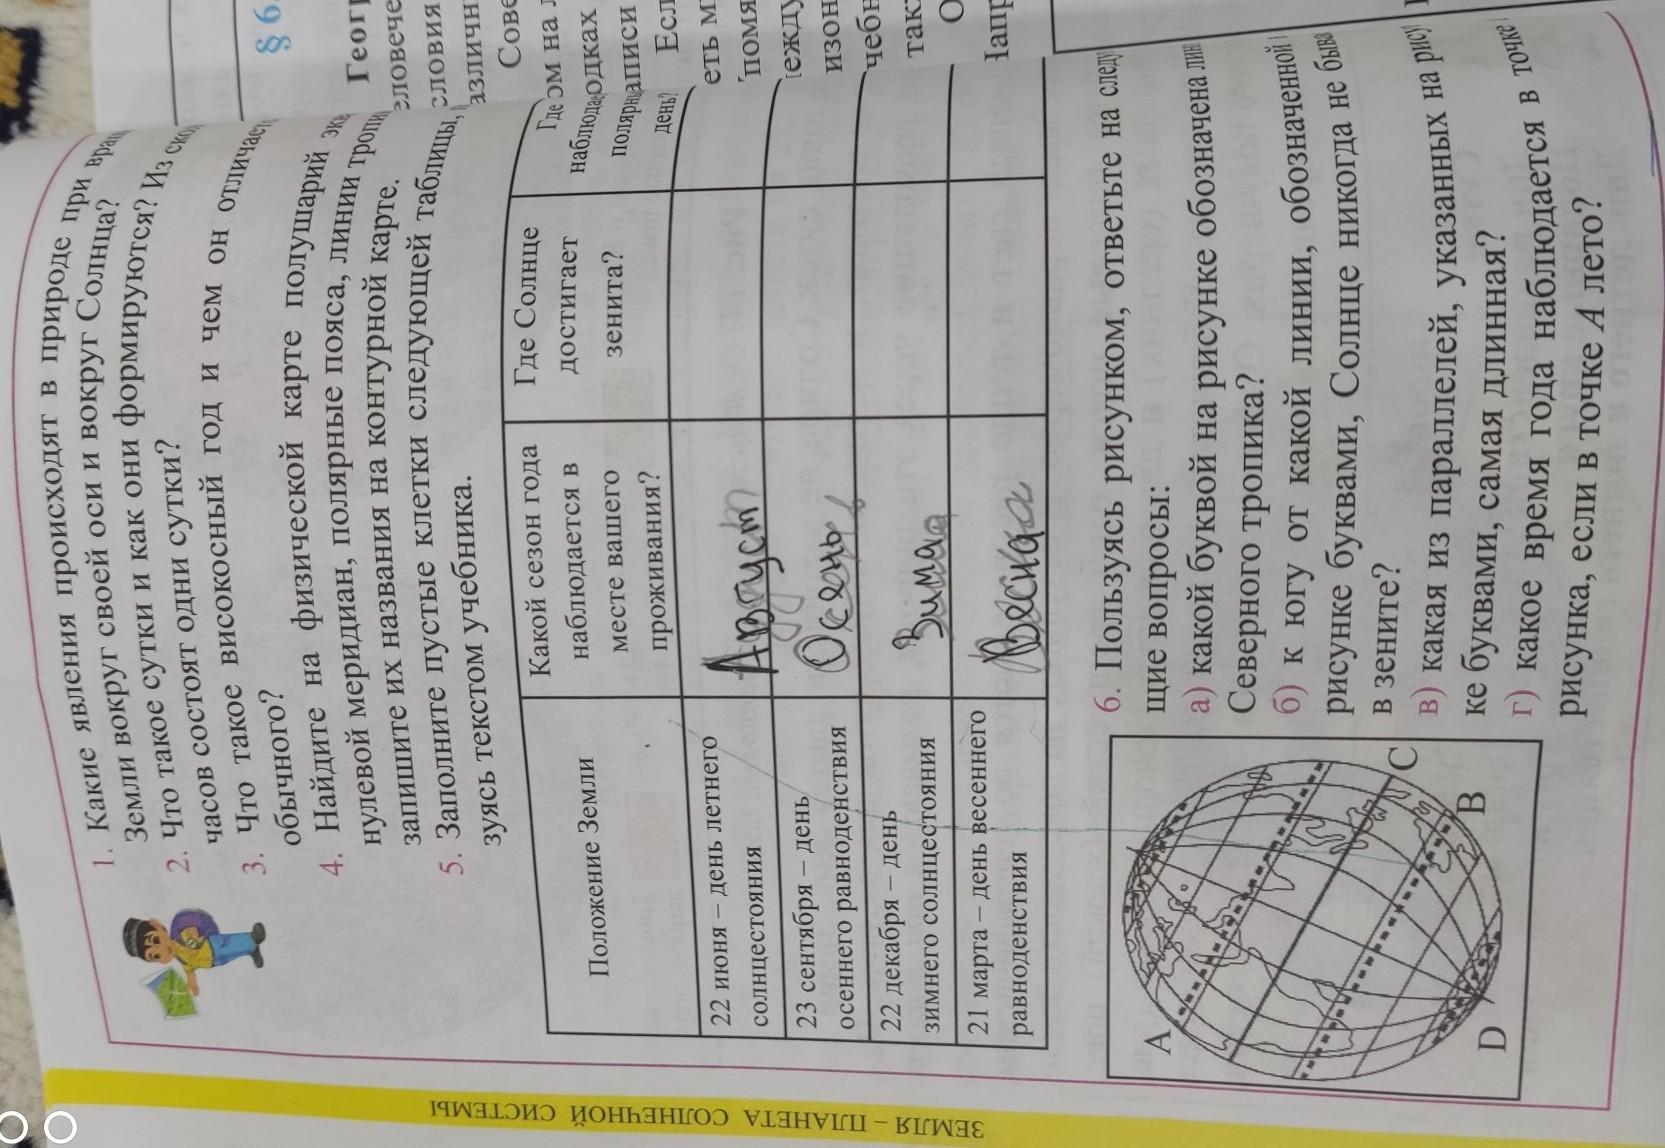 1. Какие явления происходят в природе при
Земли вокруг своей оси и вокруг Солнца?
2. Что такое сутки и как они формируются? Из
часов состоят одни сутки?
3. Что такое високосный год и чем он отличает
обычного?
4. Найдите на физической карте полушарий
нулевой меридиан, полярные пояса, линии
запишите их названия на контурной карте.
5. Заполните пустые клетки следующей таблицы,
зуясь текстом учебника.
Положение Земли
Какой сезон года
наблюдается в
месте вашего
проживания?
Где Солнце
достигает
зенита?
Где
наблюдае
полярны
день?
22 июня – день летнего
солнцестояния
Август
23 сентября – день
осеннего равноденствия
Осень
22 декабря – день
зимнего солнцестояния
Зима
21 марта – день весеннего
равноденствия
Весна
A
C
B
D
6. Пользуясь рисунком, ответьте на следу
щие вопросы:
а) какой буквой на рисунке обозначена
Северного тропика?
б) к югу от какой линии, обозначенной
рисунке буквами, Солнце никогда не быва
в зените?
в) какая из параллелей, указанных на рису
ке буквами, самая длинная?
г) какое время года наблюдается в точке
рисунка, если в точке A лето?
ЗЕМЛЯ – ПЛАНЕТА СОЛНЕЧНОЙ СИСТЕМЫ
§ 6.
Геогр
словия
Сове
ом на
одках
аписи
Есл
еть м
помя
изон
чебн
такж
О
Напр